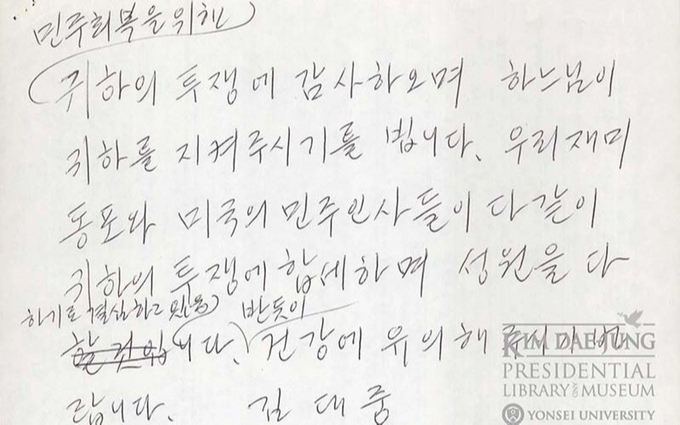 민주회복을 위해
귀하의 투쟁에 감사하오며 하느님이
귀하를 지켜주시기를 빕니다. 우리 재미
동포와 미국의 민주인사들이 다같이
귀하의 투쟁에 합세하며 성원을 다
하기로 결심하고 있습 반듯이
할 것입니다. 건강에 유의해 주시기 바
랍니다. 김대중
KIM DAEJUNG
PRESIDENTIAL
LIBRARY AND MUSEUM
YONSEI UNIVERSITY